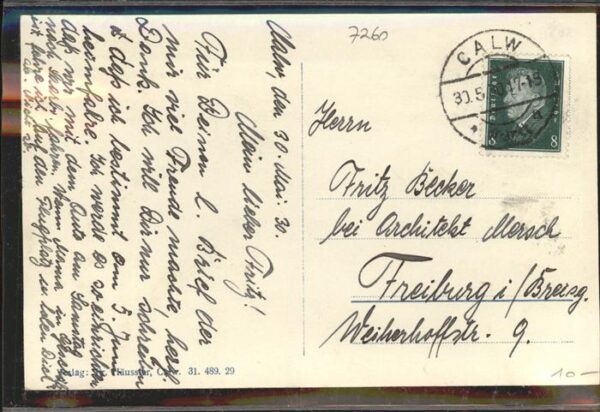 7260
Calw, den 30. Mai 30.
Mein lieber Fritz!
Für Deinen l. Brief der
mir viel Freude machte, herzl.
Dank. Ich will Dir nur schreiben
daß ich bestimmt am 5. Juni
heimfahre. Ich werde es so einrichten
daß wir mit dem Auto am
nach
auf den Flugplatz
CALW
30.5.30.17-18
8 8
Herrn
Fritz Becker
bei Architekt Mersch
Freiburg i/Breisg.
Weiherhoffstr. 9.
Verlag: Fr. Häussler, Calw. 31. 489. 29
10.-